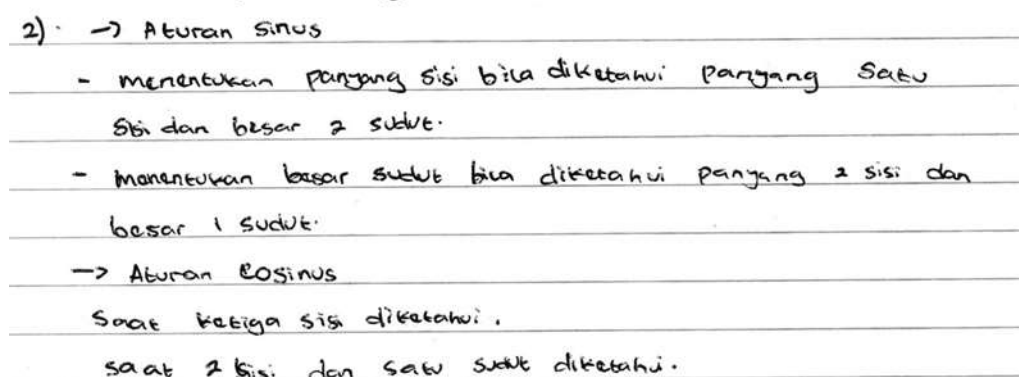 2). → Aturan Sinus
- menentukan panjang sisi bila diketahui panjang satu
sisi dan besar 2 sudut.
- menentukan besar sudut bila diketahui panjang 2 sisi dan
besar 1 sudut.
→ Aturan Cosinus
Saat ketiga sisi diketahui.
saat 2 sisi dan satu sudut diketahui.